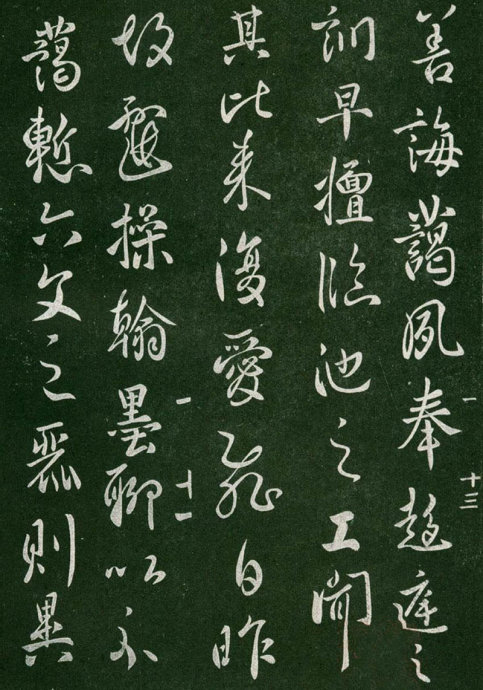 善誨藹夙奉趍庭之
訓早擅臨池之工聞
其比来復愛飛白昨
故操翰墨聊以示
藹慙六文之則異
一
十三
一
十一